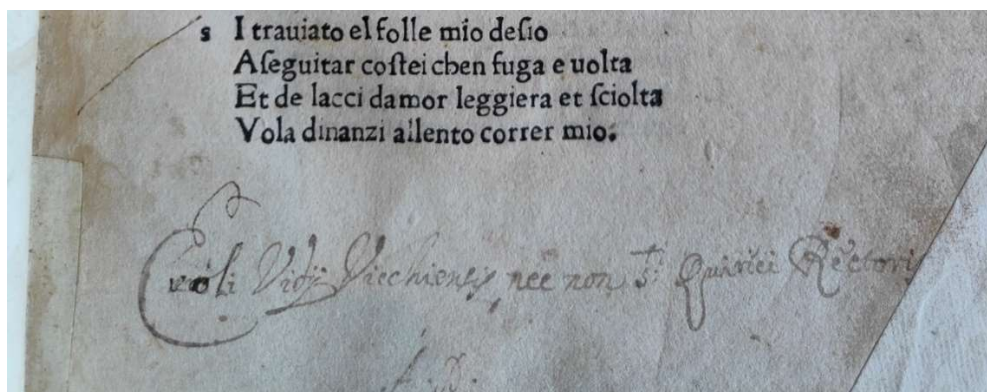 s I trauiato el folle mio deſio
A ſeguitar coſtei chen fuga e uolta
Et de lacci damor leggiera et ſciolta
Vola dinanzi allento correr mio.
Vicchiensis nec non Sti Quirici Rectoris